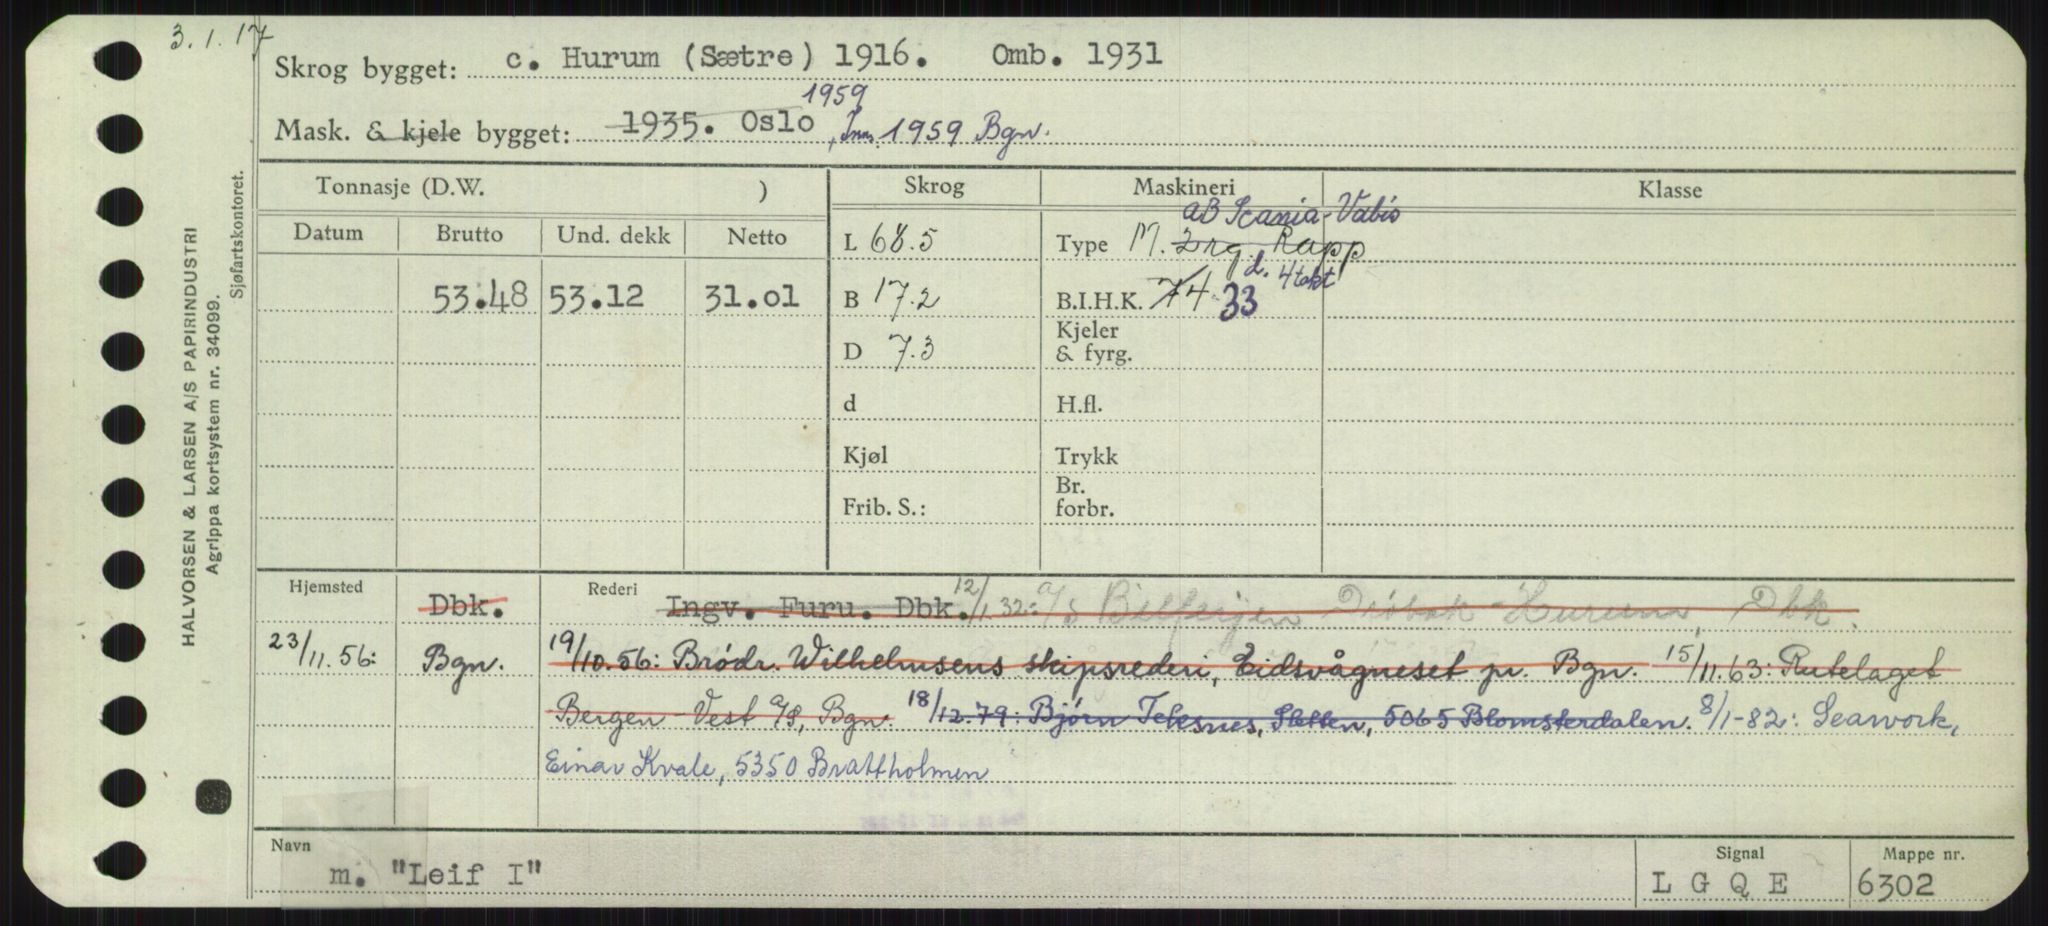 3.1.17
Skrog bygget: c. Hurum (Sætre) 1916. Omb. 1931
1959
Mask. & kjele bygget: 1935. Oslo, Inns. 1959 Bgn.
Tonnasje (D.W. ) Skrog Maskineri Klasse
AB Scania-Vabis
Datum Brutto Und. dekk Netto L 68.5 Type M. Rapp
d. 4takt
53.48 53.12 31.01 B 17.2 B.I.H.K. 74 33
Kjeler
D 7.3 & fyrg.
d H.fl.
Kjøl Trykk
Br.
Frib. S.: forbr.
Hjemsted Dbk. Rederi Ingv. Furu. Dbk. 12/1.32: A/S Bilferjen Drøbak-Hurum, Dbk.
23/11.56: Bgn. 19/10.56: Brødr. Wilhelmsens skipsrederi, Eidsvågneset pr. Bgn. 15/11.63: Rutelaget
Bergen-Vest A/S, Bgn. 18/12.79: Bjørn Telsnes, Sletten, 5065 Blomsterdalen. 8/1-82: Seawork,
Einar Kvale, 5350 Brattholmen
Navn Signal Mappe nr.
m. "Leif I" L G Q E 6302
HALVORSEN & LARSEN A/S PAPIRINDUSTRI
Agrippa kortsystem nr. 34099.
Sjøfartskontoret.